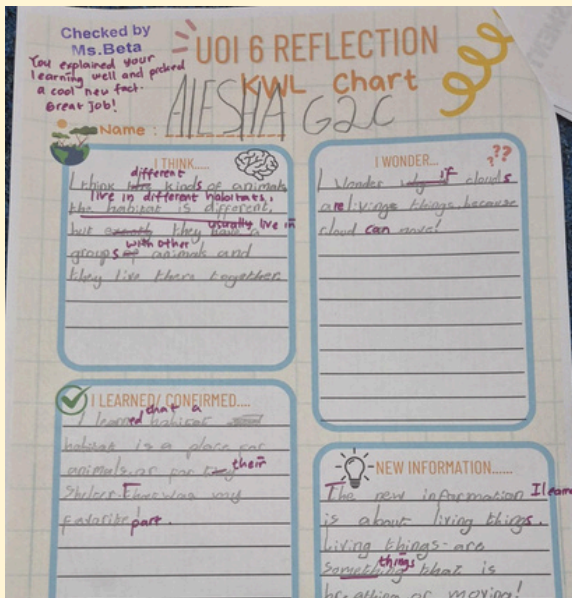 Checked by
Ms.Beta
You explained your
learning well and picked
a cool new fact.
Great job!
UOI 6 REFLECTION
KWL Chart
Name : AlESHA G2C
I THINK....
different
I think kinds of animals
live in different habitats.
the habitat is different,
usually live in
but they have a
with other
groups of animals and
they live there together.
I WONDER...
??
I wonder if clouds
are livings things because
cloud can move!
I LEARNED/ CONFIRMED....
that a
I learned habitat
habitat is a place for
animals or for their
Shelter. That was my
favorite part.
NEW INFORMATION......
The new information I learn
is about living things.
Living things are
things
something that is
breathing or moving!